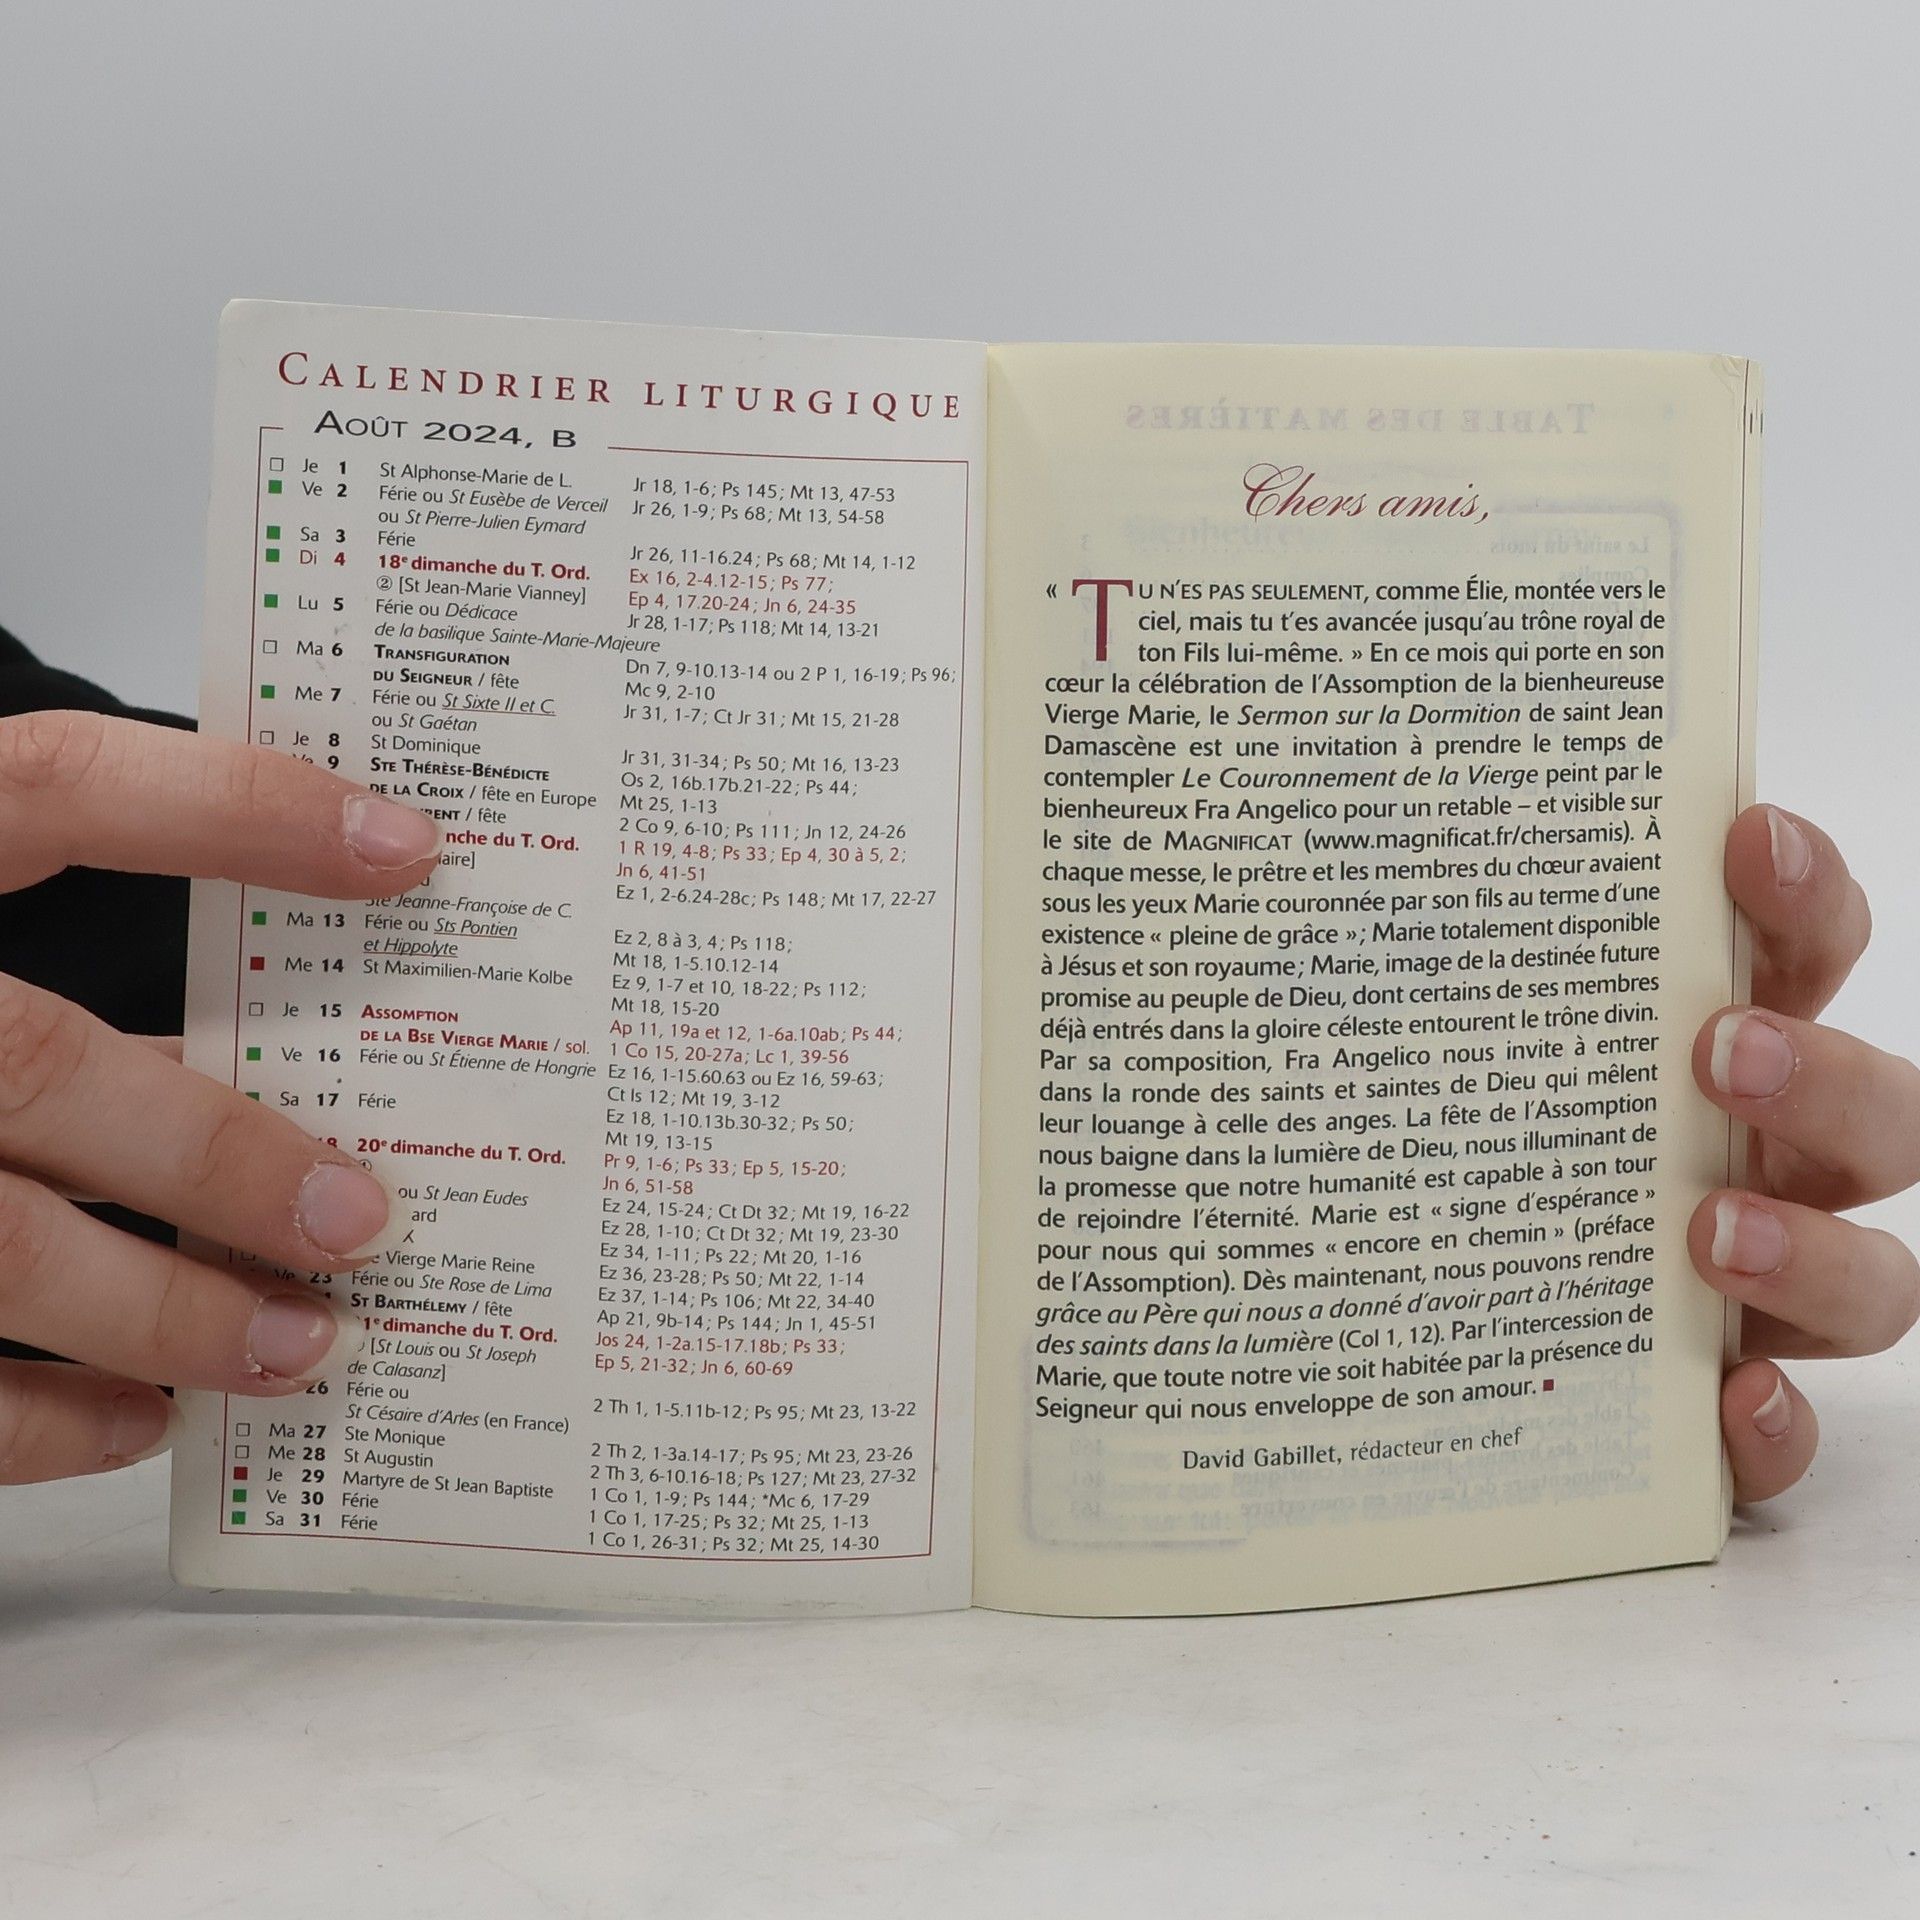 CALENDRIER LITURGIQUE
AOÛT 2024, B
Je 1 St Alphonse-Marie de L. Jr 18, 1-6; Ps 145; Mt 13, 47-53
Ve 2 Férie ou St Eusèbe de Verceil Jr 26, 1-9; Ps 68; Mt 13, 54-58
ou St Pierre-Julien Eymard
Sa 3 Férie Jr 26, 11-16.24; Ps 68; Mt 14, 1-12
Di 4 18e dimanche du T. Ord. Ex 16, 2-4.12-15; Ps 77;
② [St Jean-Marie Vianney] Ep 4, 17.20-24; Jn 6, 24-35
Lu 5 Férie ou Dédicace Jr 28, 1-17; Ps 118; Mt 14, 13-21
de la basilique Sainte-Marie-Majeure
Ma 6 TRANSFIGURATION Dn 7, 9-10.13-14 ou 2 P 1, 16-19; Ps 96;
DU SEIGNEUR / fête Mc 9, 2-10
Me 7 Férie ou St Sixte II et C. Jr 31, 1-7; Ct Jr 31; Mt 15, 21-28
ou St Gaétan
Je 8 St Dominique Jr 31, 31-34; Ps 50; Mt 16, 13-23
9 STE THÉRÈSE-BÉNÉDICTE Os 2, 16b.17b.21-22; Ps 44;
DE LA CROIX / fête en Europe Mt 25, 1-13
/ fête 2 Co 9, 6-10; Ps 111; Jn 12, 24-26
du T. Ord. 1 R 19, 4-8; Ps 33; Ep 4, 30 à 5, 2;
Jn 6, 41-51
Ez 1, 2-6.24-28c; Ps 148; Mt 17, 22-27
Ste Jeanne-Françoise de C.
Ma 13 Férie ou Sts Pontien Ez 2, 8 à 3, 4; Ps 118;
et Hippolyte Mt 18, 1-5.10.12-14
Me 14 St Maximilien-Marie Kolbe Ez 9, 1-7 et 10, 18-22; Ps 112;
Mt 18, 15-20
Je 15 ASSOMPTION Ap 11, 19a et 12, 1-6a.10ab; Ps 44;
DE LA BSE VIERGE MARIE / sol. 1 Co 15, 20-27a; Lc 1, 39-56
Ve 16 Férie ou St Étienne de Hongrie Ez 16, 1-15.60.63 ou Ez 16, 59-63;
Ct Is 12; Mt 19, 3-12
Sa 17 Férie Ez 18, 1-10.13b.30-32; Ps 50;
Mt 19, 13-15
20e dimanche du T. Ord. Pr 9, 1-6; Ps 33; Ep 5, 15-20;
Jn 6, 51-58
ou St Jean Eudes Ez 24, 15-24; Ct Dt 32; Mt 19, 16-22
Ez 28, 1-10; Ct Dt 32; Mt 19, 23-30
Ez 34, 1-11; Ps 22; Mt 20, 1-16
Vierge Marie Reine Ez 36, 23-28; Ps 50; Mt 22, 1-14
23 Férie ou Ste Rose de Lima Ez 37, 1-14; Ps 106; Mt 22, 34-40
ST BARTHÉLEMY / fête Ap 21, 9b-14; Ps 144; Jn 1, 45-51
dimanche du T. Ord. Jos 24, 1-2a.15-17.18b; Ps 33;
[St Louis ou St Joseph Ep 5, 21-32; Jn 6, 60-69
de Calasanz]
26 Férie ou 2 Th 1, 1-5.11b-12; Ps 95; Mt 23, 13-22
St Césaire d'Arles (en France)
Ma 27 Ste Monique 2 Th 2, 1-3a.14-17; Ps 95; Mt 23, 23-26
Me 28 St Augustin 2 Th 3, 6-10.16-18; Ps 127; Mt 23, 27-32
Je 29 Martyre de St Jean Baptiste 1 Co 1, 1-9; Ps 144; *Mc 6, 17-29
Ve 30 Férie 1 Co 1, 17-25; Ps 32; Mt 25, 1-13
Sa 31 Férie 1 Co 1, 26-31; Ps 32; Mt 25, 14-30
Chers amis,
« TU N'ES PAS SEULEMENT, comme Élie, montée vers le
ciel, mais tu t'es avancée jusqu'au trône royal de
ton Fils lui-même. » En ce mois qui porte en son
cœur la célébration de l'Assomption de la bienheureuse
Vierge Marie, le Sermon sur la Dormition de saint Jean
Damascène est une invitation à prendre le temps de
contempler Le Couronnement de la Vierge peint par le
bienheureux Fra Angelico pour un retable – et visible sur
le site de MAGNIFICAT (www.magnificat.fr/chersamis). À
chaque messe, le prêtre et les membres du chœur avaient
sous les yeux Marie couronnée par son fils au terme d'une
existence « pleine de grâce »; Marie totalement disponible
à Jésus et son royaume; Marie, image de la destinée future
promise au peuple de Dieu, dont certains de ses membres
déjà entrés dans la gloire céleste entourent le trône divin.
Par sa composition, Fra Angelico nous invite à entrer
dans la ronde des saints et saintes de Dieu qui mêlent
leur louange à celle des anges. La fête de l'Assomption
nous baigne dans la lumière de Dieu, nous illuminant de
la promesse que notre humanité est capable à son tour
de rejoindre l'éternité. Marie est « signe d'espérance »
pour nous qui sommes « encore en chemin » (préface
de l'Assomption). Dès maintenant, nous pouvons rendre
grâce au Père qui nous a donné d'avoir part à l'héritage
des saints dans la lumière (Col 1, 12). Par l'intercession de
Marie, que toute notre vie soit habitée par la présence du
Seigneur qui nous enveloppe de son amour.
David Gabillet, rédacteur en chef